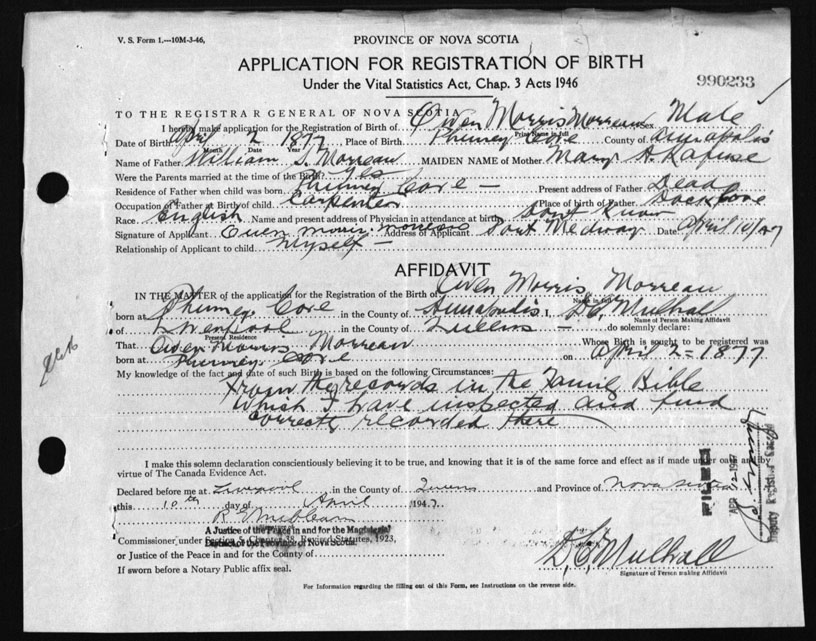 V. S. Form 1.—10M-3-46,
PROVINCE OF NOVA SCOTIA
APPLICATION FOR REGISTRATION OF BIRTH
Under the Vital Statistics Act, Chap. 3 Acts 1946
990233
TO THE REGISTRAR GENERAL OF NOVA SCOTIA
I hereby make application for the Registration of Birth of Owen Morris Morreau sex Male
Print Name in full
Date of Birth April 2 1877 Place of Birth Phinney Cove County of Annapolis
Month Date Year
Name of Father William S. Morreau MAIDEN NAME of Mother Mary A. Lafuse
Were the Parents married at time of the Birth Yes
Residence of Father when child was born Phinney Cove — Present address of Father Dead
Occupation of Father at Birth of child Carpenter Place of birth of Father Cove
Race English Name and present address of Physician in attendance at birth Dont Know
Signature of Applicant Owen Morris Morreau Address of Applicant Port Medway Date April 10/47
Relationship of Applicant to child Myself —
AFFIDAVIT
IN THE MATTER of the application for the Registration of the Birth of Owen Morris Morreau
Name in full
born at Phinney Cove in the County of Annapolis I, D.C. Mulhall
Name of Person Making Affidavit
of Liverpool in the County of Queens — do solemnly declare:
Present Residence
That Owen Morris Morreau Whose Birth is sought to be registered was
born at Phinney Cove on April 2 = 1877
My knowledge of the fact and date of such Birth is based on the following Circumstances:
From the records in the Family Bible
which I have inspected and find
correctly recorded there
I make this solemn declaration conscientiously believing it to be true, and knowing that it is of the same force and effect as if made under oath and by
virtue of The Canada Evidence Act.
Declared before me at Liverpool in the County of Queens and Province of Nova Scotia
this 10th day of April 1947.
A Justice of the Peace in and for the Magisterial
Commissioner under Section 5, Chapter 38, Revised Statutes, 1923,
District of the Province of Nova Scotia.
or Justice of the Peace in and for the County of
If sworn before a Notary Public affix seal.
D.C. Mulhall
Signature of Person making Affidavit
For Information regarding the filling out of this Form, see Instructions on the reverse side.
FILED
APR 12 1947
Deputy Registrar General